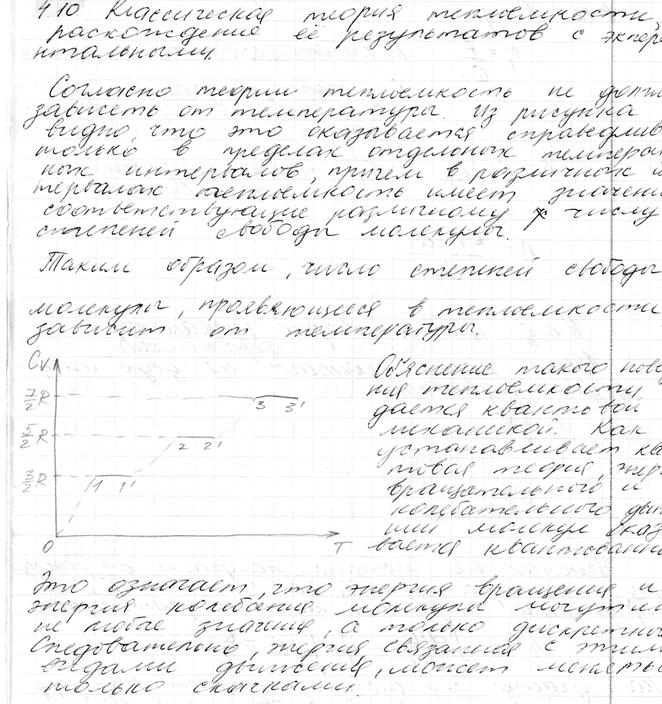 4.10 Классическая теория теплоемкости,
расхождение её результатов с экспер
нтальными.
Согласно теории теплоемкость не долж
зависеть от температуры. Из рисунка
видно, что это оказывается справедлив
только в пределах отдельных температ
ных интервалов, причем в различных и
тервалах теплоемкость имеет значени
соответствующие различному числу
степеней свободы молекулы.
Таким образом, число степеней свободы
молекулы, проявляющееся в теплоемкости
зависит от температуры.
Cv
7/2 R
3 3'
5/2 R
2 2'
3/2 R
1 1'
0 T
Объяснение такого пове
ния теплоемкости
дается квантовой
механикой. Как
устанавливает ква
товая теория, энер
вращательного и
колебательного дви
ний молекул оказ
вается квантованн
Это означает, что энергия вращения и
энергия колебания молекулы могут им
не любые значения, а только дискретно
Следовательно, энергия связанная с этим
видами движения, может менять
только скачками.